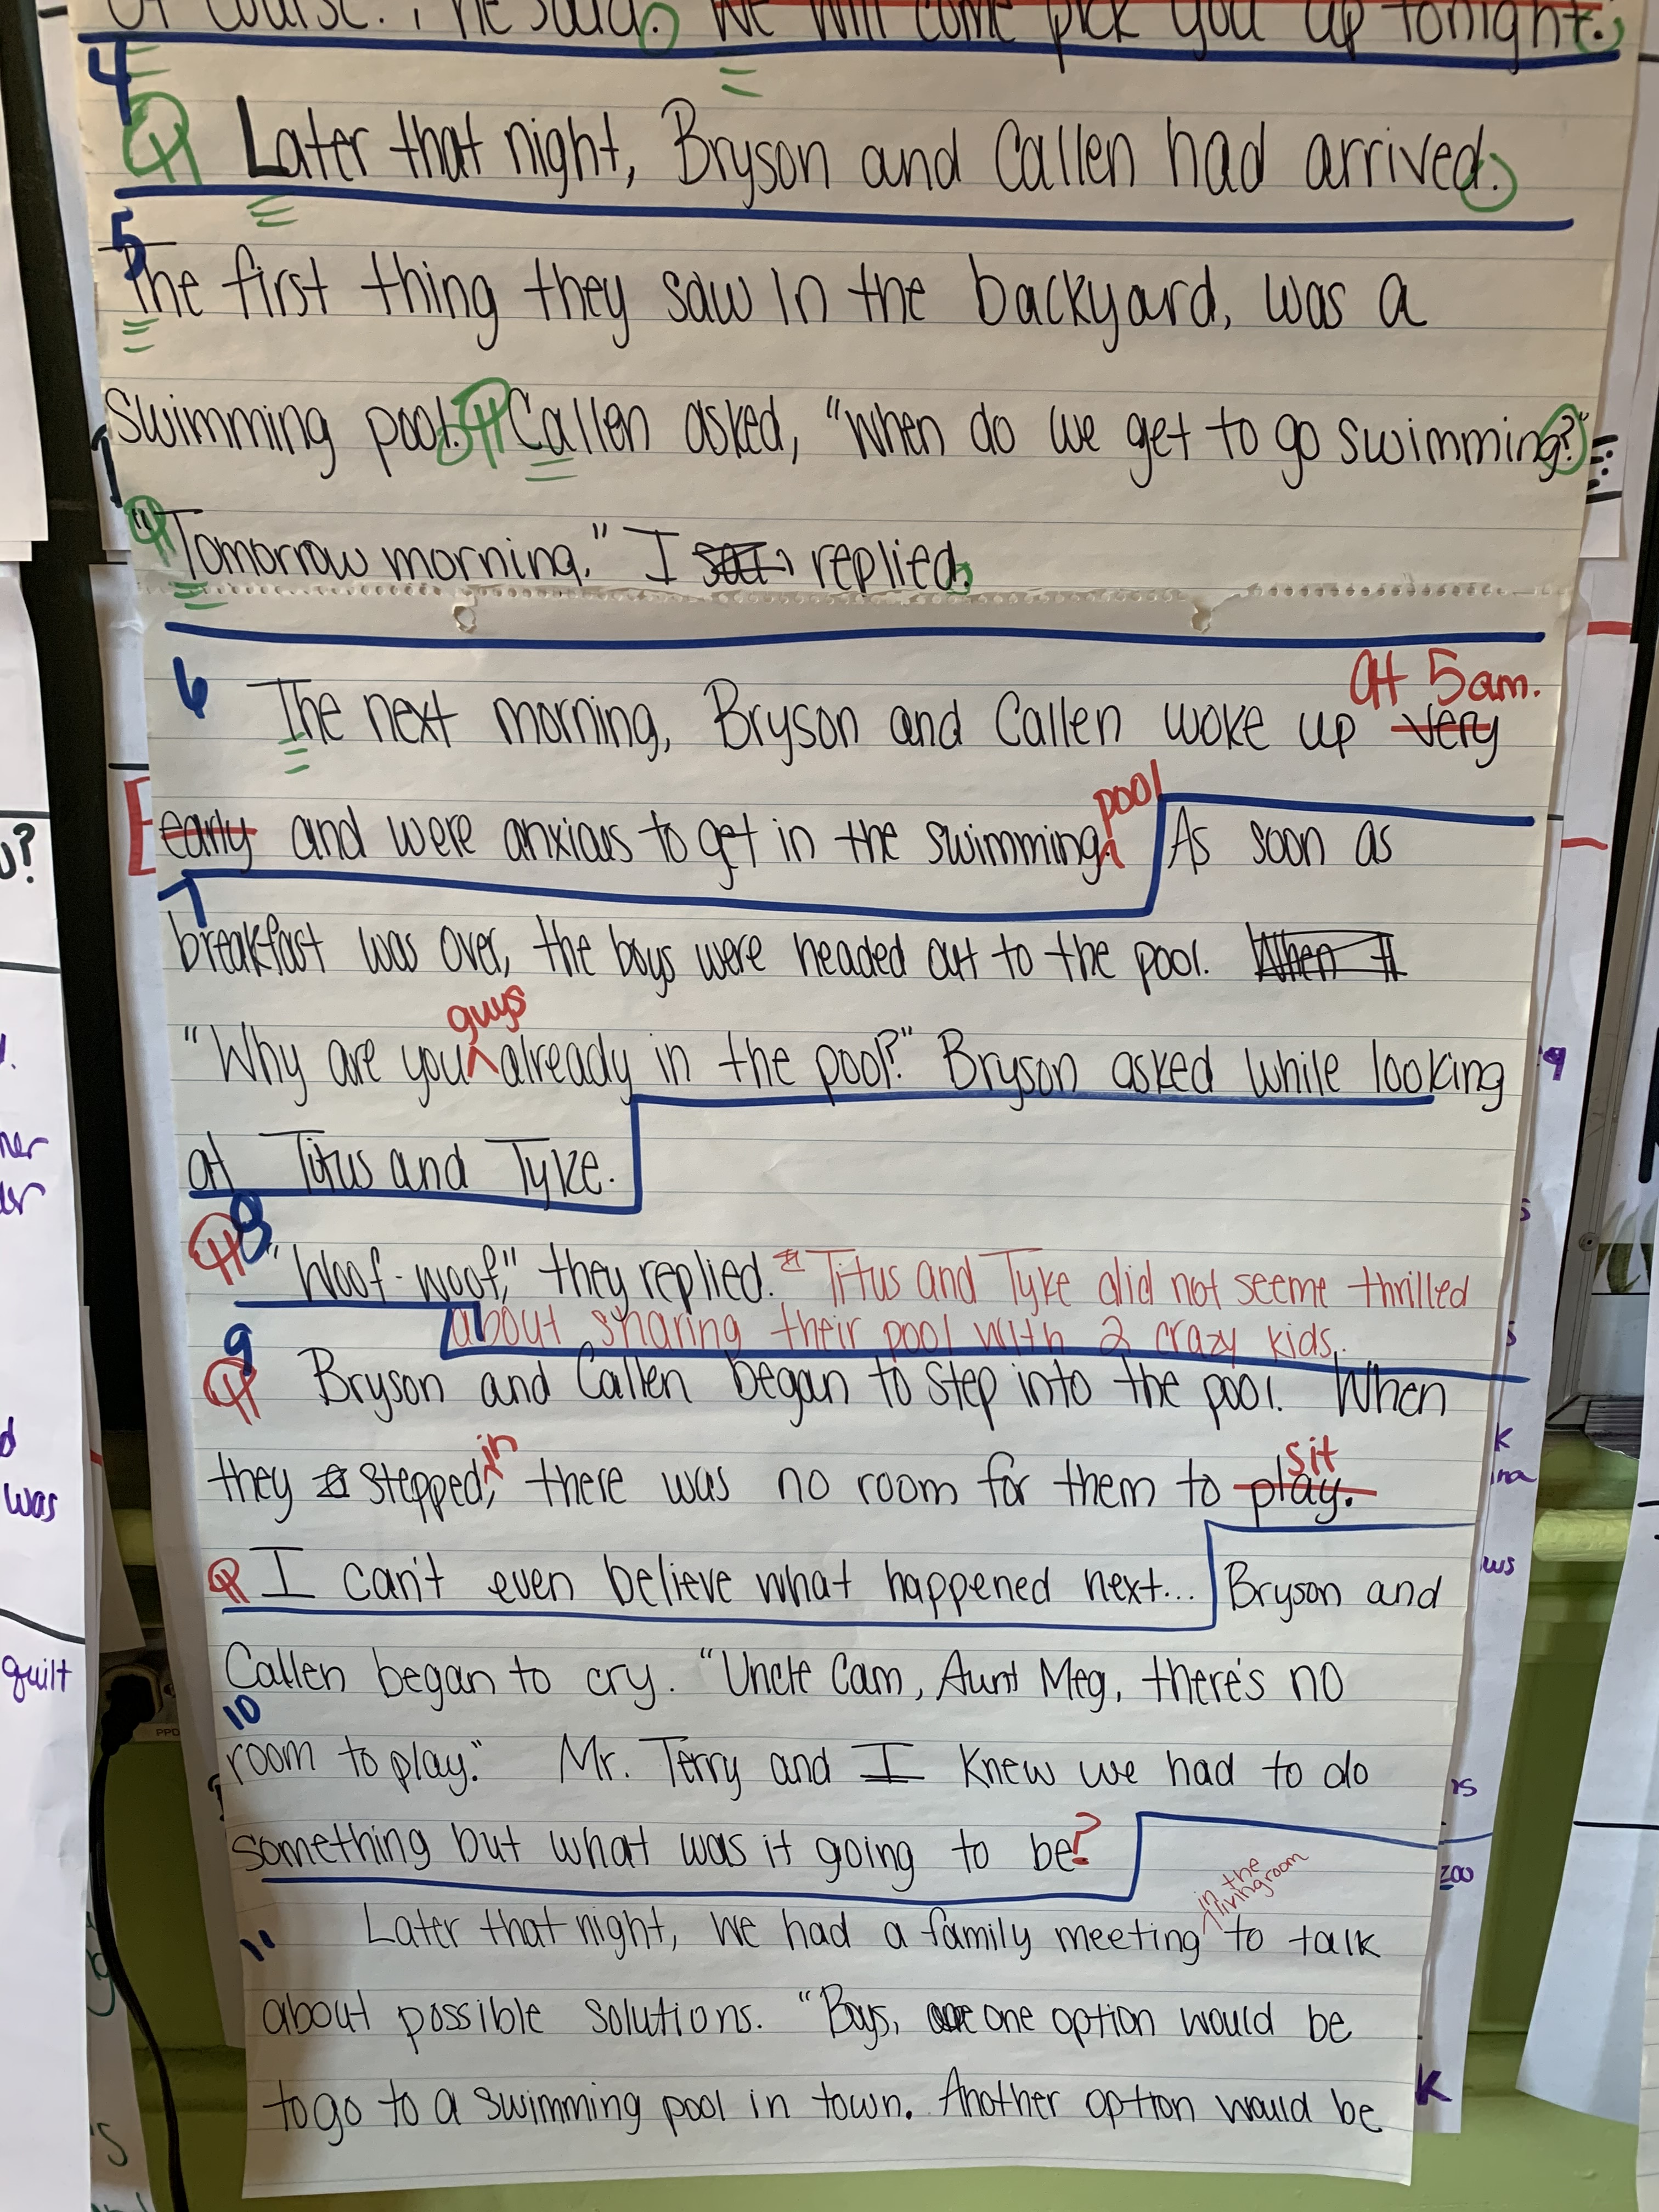 Of course!", he said. We will come pick you up tonight.
4
Later that night, Bryson and Callen had arrived.
5
The first thing they saw in the backyard, was a
swimming pool. Callen asked, "When do we get to go swimming?"
"Tomorrow morning." I replied.
6
at 5am.
The next morning, Bryson and Callen woke up very
pool
early and were anxious to get in the swimming As soon as
7
breakfast was over, the boys were headed out to the pool. When
guys
"Why are you already in the pool?" Bryson asked while looking
at Titus and Tyke.
8
"Woof-woof," they replied. Titus and Tyke did not seeme thrilled
about sharing their pool with 2 crazy kids.
9
Bryson and Callen began to step into the pool. When
in sit
they stepped, there was no room for them to play.
I can't even believe what happened next... Bryson and
Callen began to cry. "Uncle Cam, Aunt Meg, there's no
10
room to play." Mr. Terry and I knew we had to do
something but what was it going to be?
in the
livingroom
11
Later that night, we had a family meeting to talk
about possible solutions. "Boys, one option would be
to go to a swimming pool in town. Another option would be
quilt
was
zoo